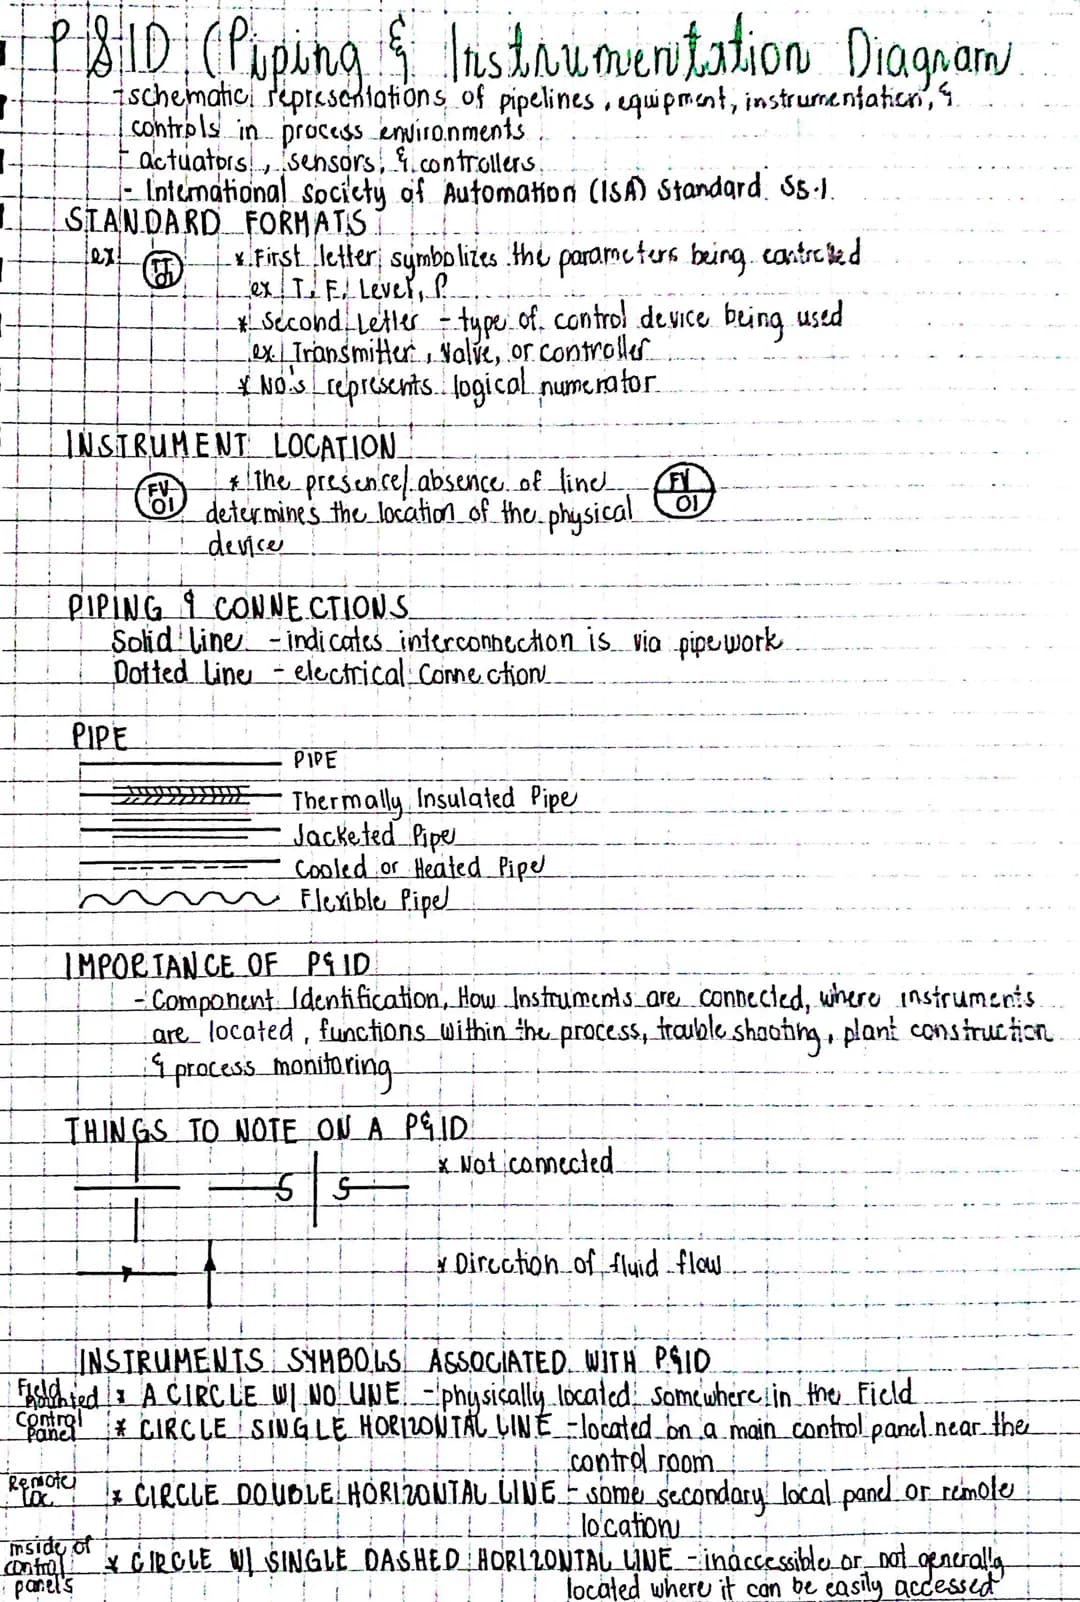 P&ID (Piping & Instrumentation Diagram
- schematic representations of pipelines, equipment, instrumentation, &
controls in process environments
- actuators, sensors, & controllers
- International Society of Automation (ISA) Standard S5.1.
STANDARD FORMATS
ex| TT 01 * First letter symbolizes the parameters being controlled
ex| T, F, Level, P
* Second Letter - type of control device being used
ex| Transmitter, Valve, or controller
* No.s represents logical numerator
INSTRUMENT LOCATION
FV 01 * the presence/absence of line FV 01
determines the location of the physical
device
PIPING & CONNECTIONS
Solid Line - indicates interconnection is via pipework
Dotted Line - electrical Connection
PIPE
PIPE
Thermally Insulated Pipe
Jacketed Pipe
Cooled or Heated Pipe
Flexible Pipe
IMPORTANCE OF P&ID
- Component Identification, How Instruments are connected, where instruments
are located, functions within the process, trouble shooting, plant construction
& process monitoring
THINGS TO NOTE ON A P&ID
* Not connected
S S
* Direction of fluid flow
INSTRUMENTS SYMBOLS ASSOCIATED WITH P&ID
Field mounted * A CIRCLE W/ NO LINE - physically located somewhere in the Field
Control Panel * CIRCLE SINGLE HORIZONTAL LINE - located on a main control panel near the
control room
Remote Loc * CIRCLE DOUBLE HORIZONTAL LINE - some secondary local panel or remote
location
inside of control panels * CIRCLE W/ SINGLE DASHED HORIZONTAL LINE - inaccessible or not generally
located where it can be easily accessed